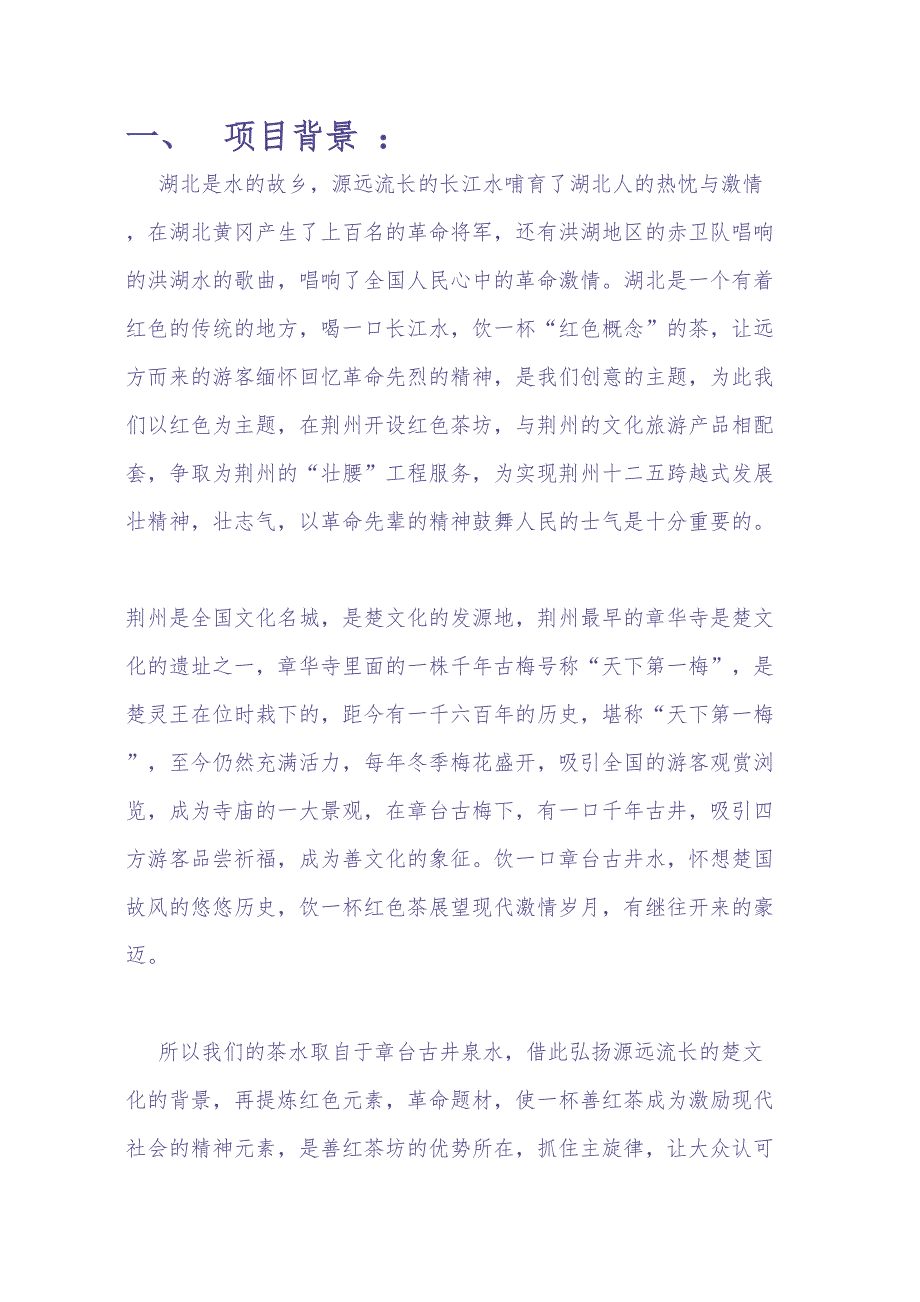 一、 项目背景 ：
湖北是水的故乡，源远流长的长江水哺育了湖北人的热忱与激情
，在湖北黄冈产生了上百名的革命将军，还有洪湖地区的赤卫队唱响
的洪湖水的歌曲，唱响了全国人民心中的革命激情。湖北是一个有着
红色的传统的地方，喝一口长江水，饮一杯“红色概念”的茶，让远
方而来的游客缅怀回忆革命先烈的精神，是我们创意的主题，为此我
们以红色为主题，在荆州开设红色茶坊，与荆州的文化旅游产品相配
套，争取为荆州的“壮腰”工程服务，为实现荆州十二五跨越式发展
壮精神，壮志气，以革命先辈的精神鼓舞人民的士气是十分重要的。
荆州是全国文化名城，是楚文化的发源地，荆州最早的章华寺是楚文
化的遗址之一，章华寺里面的一株千年古梅号称“天下第一梅”，是
楚灵王在位时栽下的，距今有一千六百年的历史，堪称“天下第一梅
”，至今仍然充满活力，每年冬季梅花盛开，吸引全国的游客观赏浏
览，成为寺庙的一大景观，在章台古梅下，有一口千年古井，吸引四
方游客品尝祈福，成为善文化的象征。饮一口章台古井水，怀想楚国
故风的悠悠历史，饮一杯红色茶展望现代激情岁月，有继往开来的豪
迈。
所以我们的茶水取自于章台古井泉水，借此弘扬源远流长的楚文
化的背景，再提炼红色元素，革命题材，使一杯善红茶成为激励现代
社会的精神元素，是善红茶坊的优势所在，抓住主旋律，让大众认可